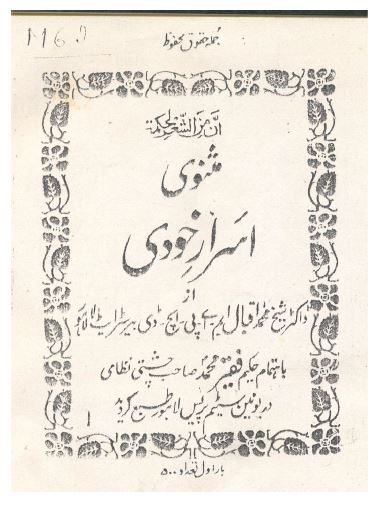 116
جملہ حقوق محفوظ
ان من الشعر لحکمة
مثنوی
اسرارِ خودی
از
ڈاکٹر شیخ محمد اقبال ایم۔ اے پی۔ ایچ۔ ڈی بیرسٹر ایٹ لا لاہور
باہتمام حکیم فقیر محمد صاحب چشتی نظامی
در یونین سٹیم پریس لاہور طبع گردید
بار اول تعداد ۵۰۰